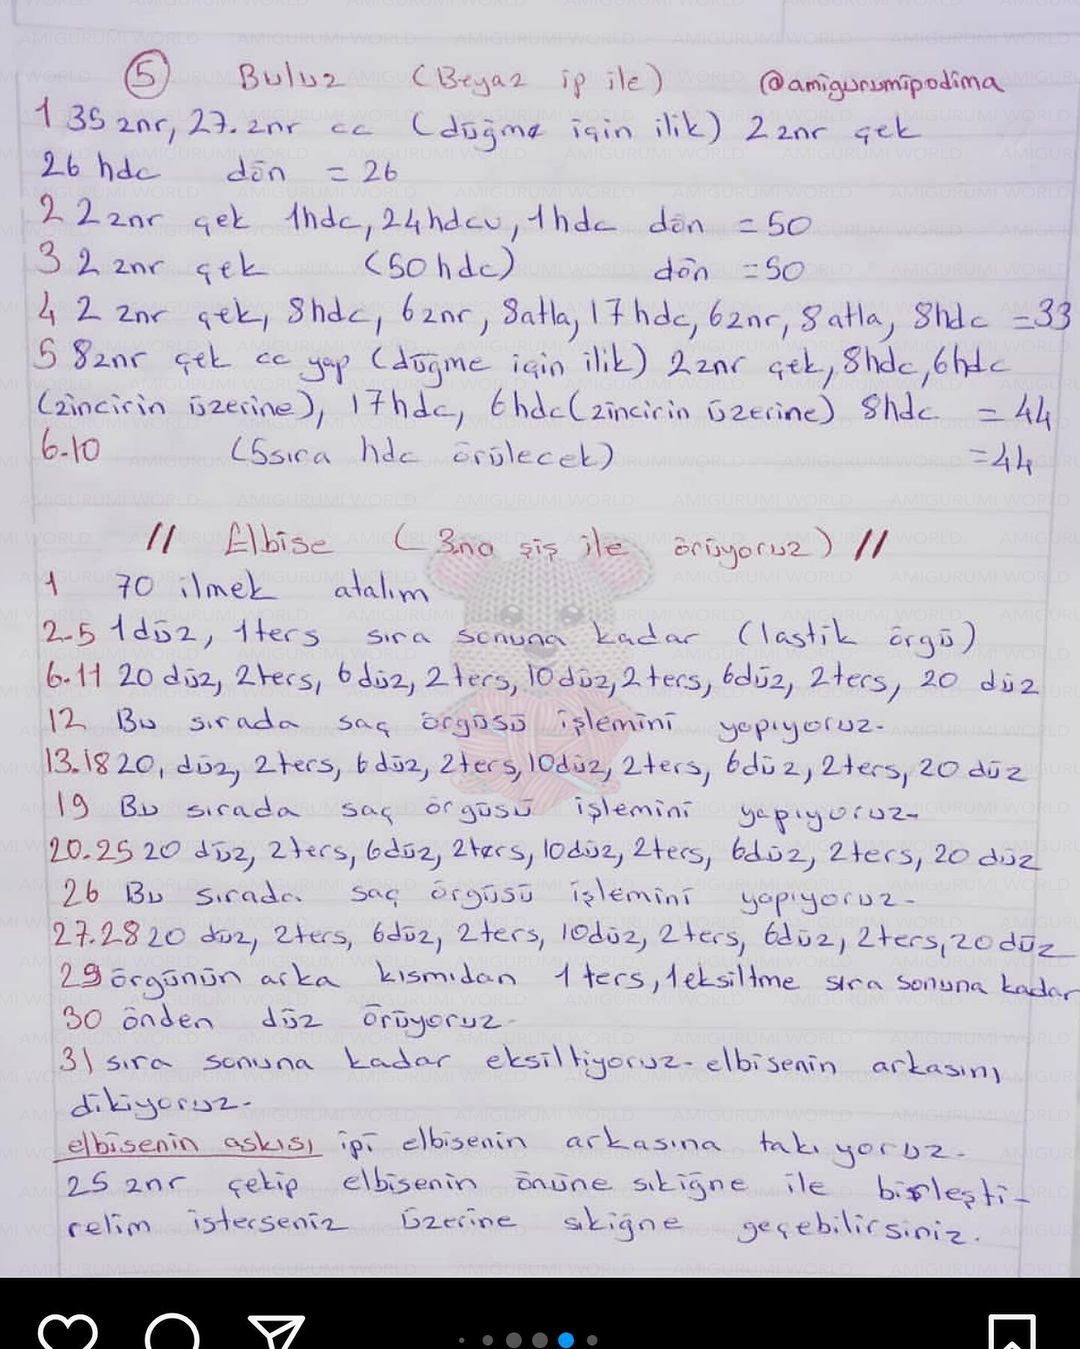 5 Buluz (Beyaz ip ile) @amigurumipodima
1 35 znr, 27. znr cc (düğme için ilik) 2 znr çek
26 hdc dön = 26
2 2 znr çek 1hdc, 24hdcv, 1hdc dön = 50
3 2 znr çek (50 hdc) dön = 50
4 2 znr çek, 8hdc, 6znr, 8atla, 17hdc, 6znr, 8atla, 8hdc = 33
5 8znr çek cc yap (düğme için ilik) 2znr çek, 8hdc, 6hdc
(zincirin üzerine), 17hdc, 6hdc (zincirin üzerine) 8hdc = 44
6-10 (5sıra hdc örülecek) = 44
// Elbise (3no şiş ile örüyoruz) //
1 70 ilmek atalım
2-5 1düz, 1ters sıra sonuna kadar (lastik örgü)
6-11 20 düz, 2ters, 6düz, 2ters, 10düz, 2ters, 6düz, 2ters, 20 düz
12 Bu sırada saç örgüsü işlemini yapıyoruz-
13.18 20, düz, 2ters, 6düz, 2ters, 10düz, 2ters, 6düz, 2ters, 20 düz
19 Bu sırada saç örgüsü işlemini yapıyoruz-
20.25 20 düz, 2ters, 6düz, 2ters, 10düz, 2ters, 6düz, 2ters, 20 düz
26 Bu sırada saç örgüsü işlemini yapıyoruz-
27.28 20 düz, 2ters, 6düz, 2ters, 10düz, 2ters, 6düz, 2ters, 20düz
29 örgünün arka kısmıdan 1 ters, 1eksiltme sıra sonuna kadar
30 önden düz örüyoruz-
31 sıra sonuna kadar eksiltiyoruz- elbisenin arkasını
dikiyoruz-
elbisenin askısı ipi elbisenin arkasına takıyoruz-
25 znr çekip elbisenin önüne sıkiğne ile birleşti-
relim isterseniz üzerine sıkiğne geçebilirsiniz.